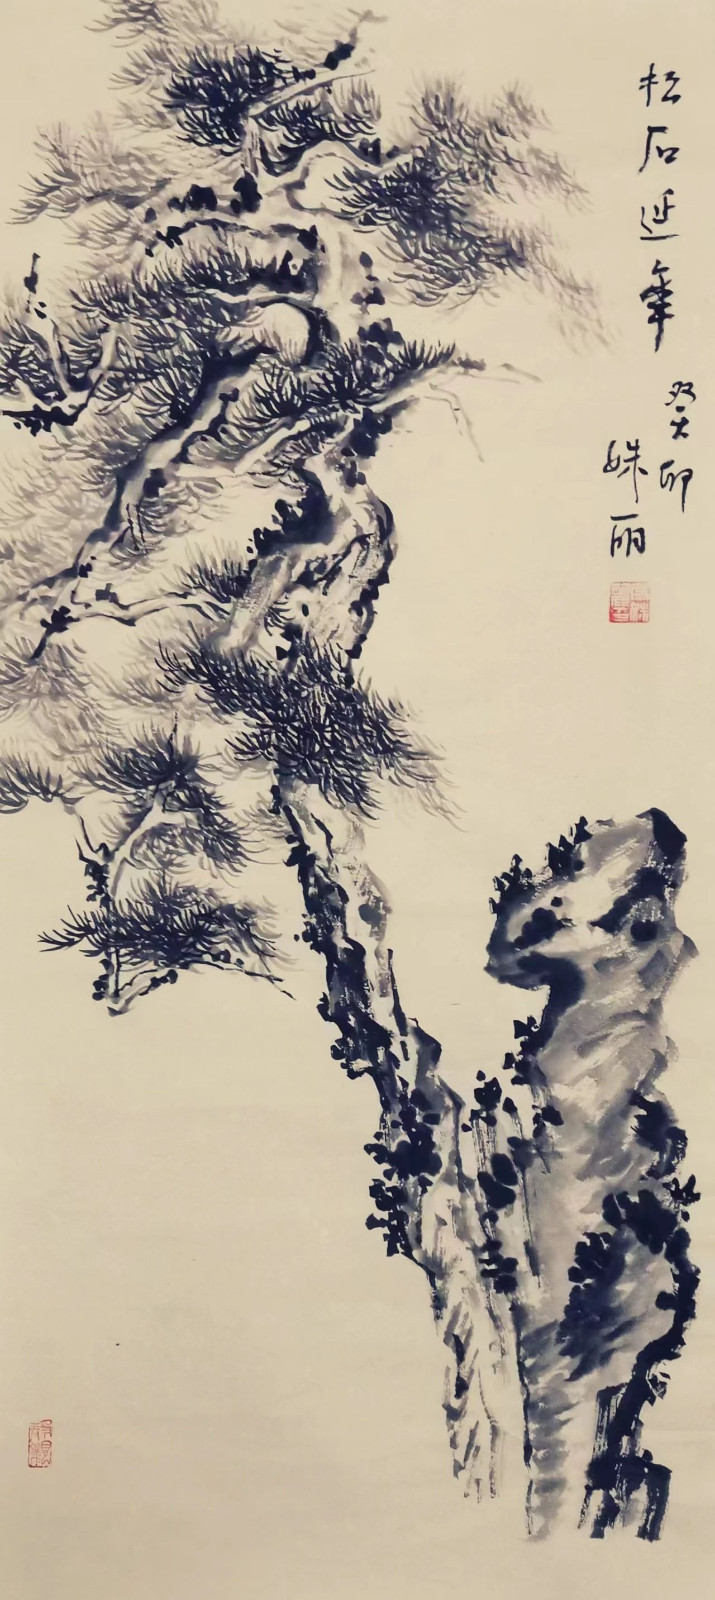 松石延年
癸卯
姝丽